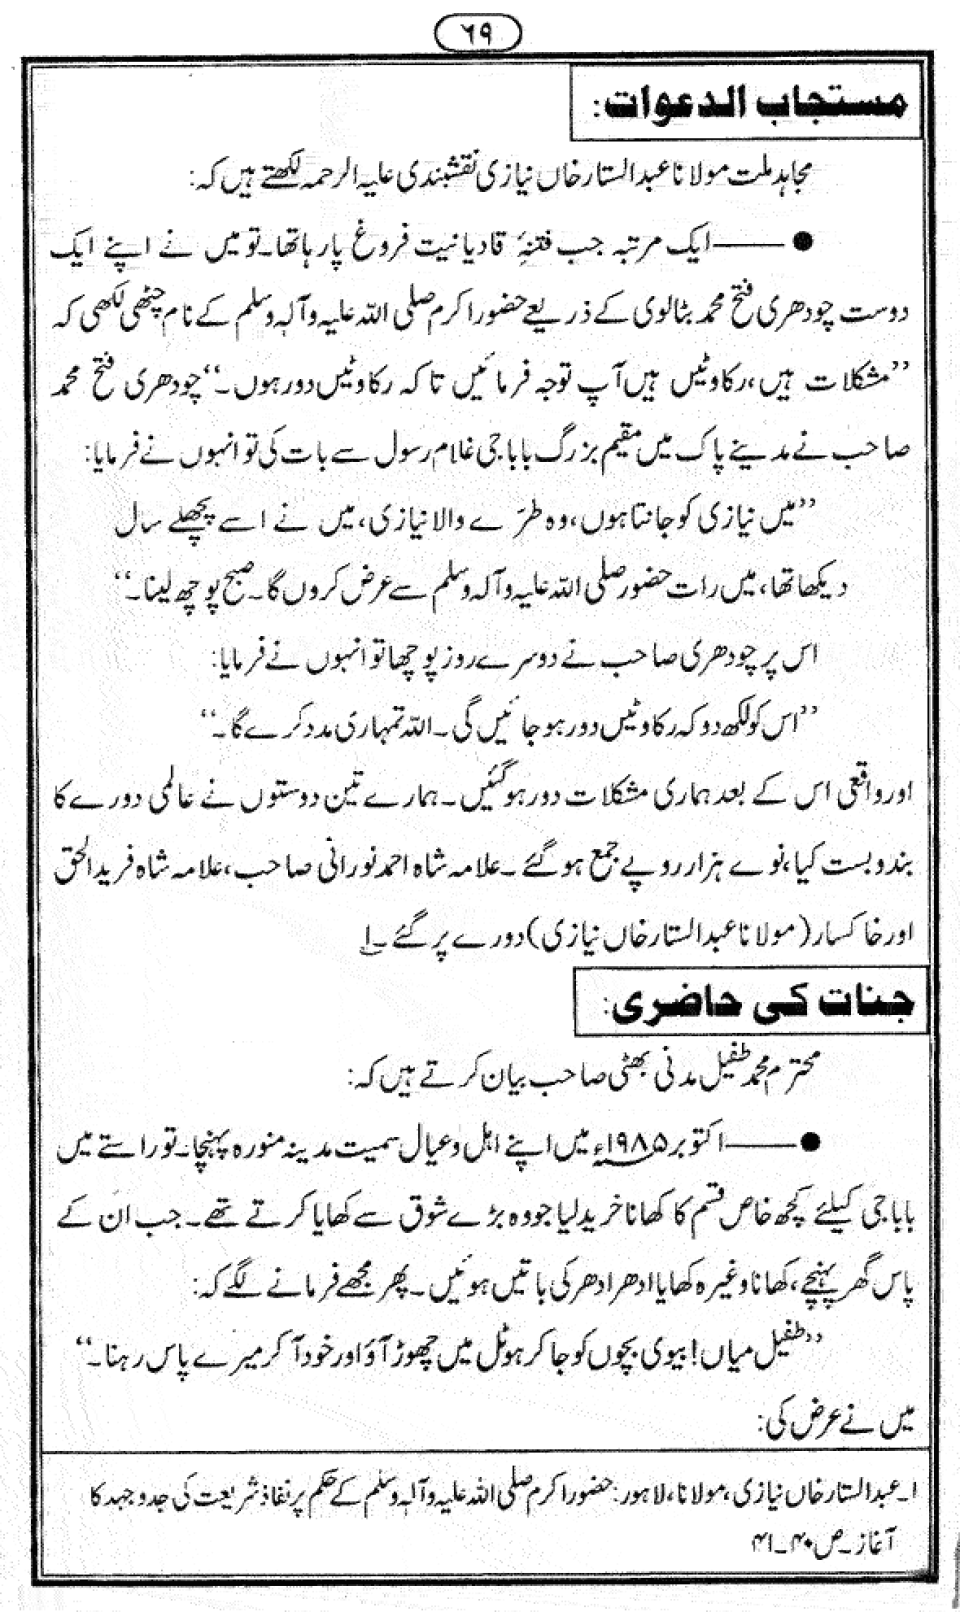 ۶۹
مستجاب الدعوات:
مجاہد ملت مولانا عبدالستار خاں نیازی نقشبندی علیہ الرحمہ لکھتے ہیں کہ:
●——— ایک مرتبہ جب فتنۂ قادیانیت فروغ پا رہا تھا۔ تو میں نے اپنے ایک
دوست چودھری فتح محمد بٹالوی کے ذریعے حضور اکرم صلی اللہ علیہ وآلہٖ وسلم کے نام چٹھی لکھی کہ
’’مشکلات ہیں، رکاوٹیں ہیں آپ توجہ فرمائیں تاکہ رکاوٹیں دور ہوں۔‘‘ چودھری فتح محمد
صاحب نے مدینے پاک میں مقیم بزرگ باباجی غلام رسول سے بات کی تو انہوں نے فرمایا:
’’میں نیازی کو جانتا ہوں، وہ طرّے والا نیازی، میں نے اسے پچھلے سال
دیکھا تھا، میں رات حضور صلی اللہ علیہ وآلہ وسلم سے عرض کروں گا۔ صبح پوچھ لینا۔‘‘
اس پر چودھری صاحب نے دوسرے روز پوچھا تو انہوں نے فرمایا:
’’اس کو لکھ دو کہ رکاوٹیں دور ہو جائیں گی۔ اللہ تمہاری مدد کرے گا۔‘‘
اور واقعی اس کے بعد ہماری مشکلات دور ہو گئیں۔ ہمارے تین دوستوں نے عالمی دورے کا
بندوبست کیا، نوے ہزار روپے جمع ہو گئے۔ علامہ شاہ احمد نورانی صاحب، علامہ شاہ فرید الحق
اور خاکسار (مولانا عبدالستار خاں نیازی) دورے پر گئے۔ ۱
جنات کی حاضری:
محترم محمد طفیل مدنی بھٹی صاحب بیان کرتے ہیں کہ:
●——— اکتوبر ۱۹۸۵ء میں اپنے اہل و عیال سمیت مدینہ منورہ پہنچا۔ تو راستے میں
باباجی کیلئے کچھ خاص قسم کا کھانا خرید لیا جو وہ بڑے شوق سے کھایا کرتے تھے۔ جب ان کے
پاس گھر پہنچے، کھانا وغیرہ کھایا ادھر ادھر کی باتیں ہوئیں۔ پھر مجھے فرمانے لگے کہ:
’’طفیل میاں! بیوی بچوں کو جا کر ہوٹل میں چھوڑ آؤ اور خود آ کر میرے پاس رہنا۔‘‘
میں نے عرض کی:
۱۔ عبدالستار خاں نیازی، مولانا، لاہور: حضور اکرم صلی اللہ علیہ وآلہٖ وسلم کے حکم پر نفاذ شریعت کی جدوجہد کا
آغاز۔ ص ۴۰۔۴۱